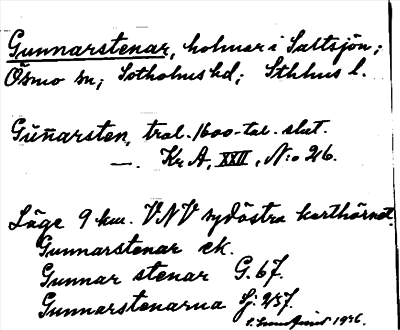 Gunnarstenar, holmar i Saltsjön;
Ösmo sn; Sotholms hd; Sthlms l.
Gūn̄arsten, trol. 1600-tal. slut.
—. Kr A, XXII, N:o 216.
Läge 9 km. VNV sydöstra karthörnet.
Gunnarstenar ek.
Gunnar stenar G. 67.
Gunnarstenarna Sj. 257.
1926.